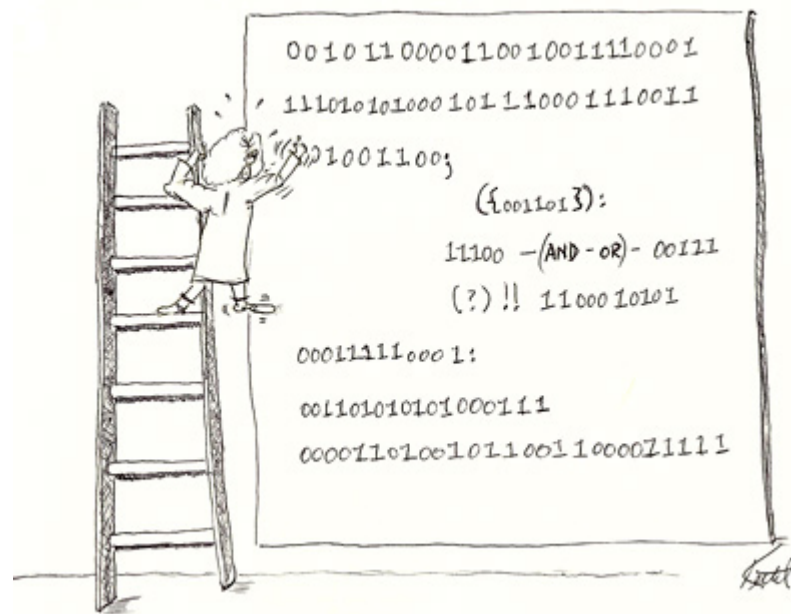 0010110000110010011110001
111010101000101110001110011
001001100;
({0011013):
11100 -(AND-OR)- 00111
(?)!! 1100010101
000111110001:
001101010101000111
000011010010110011000011111